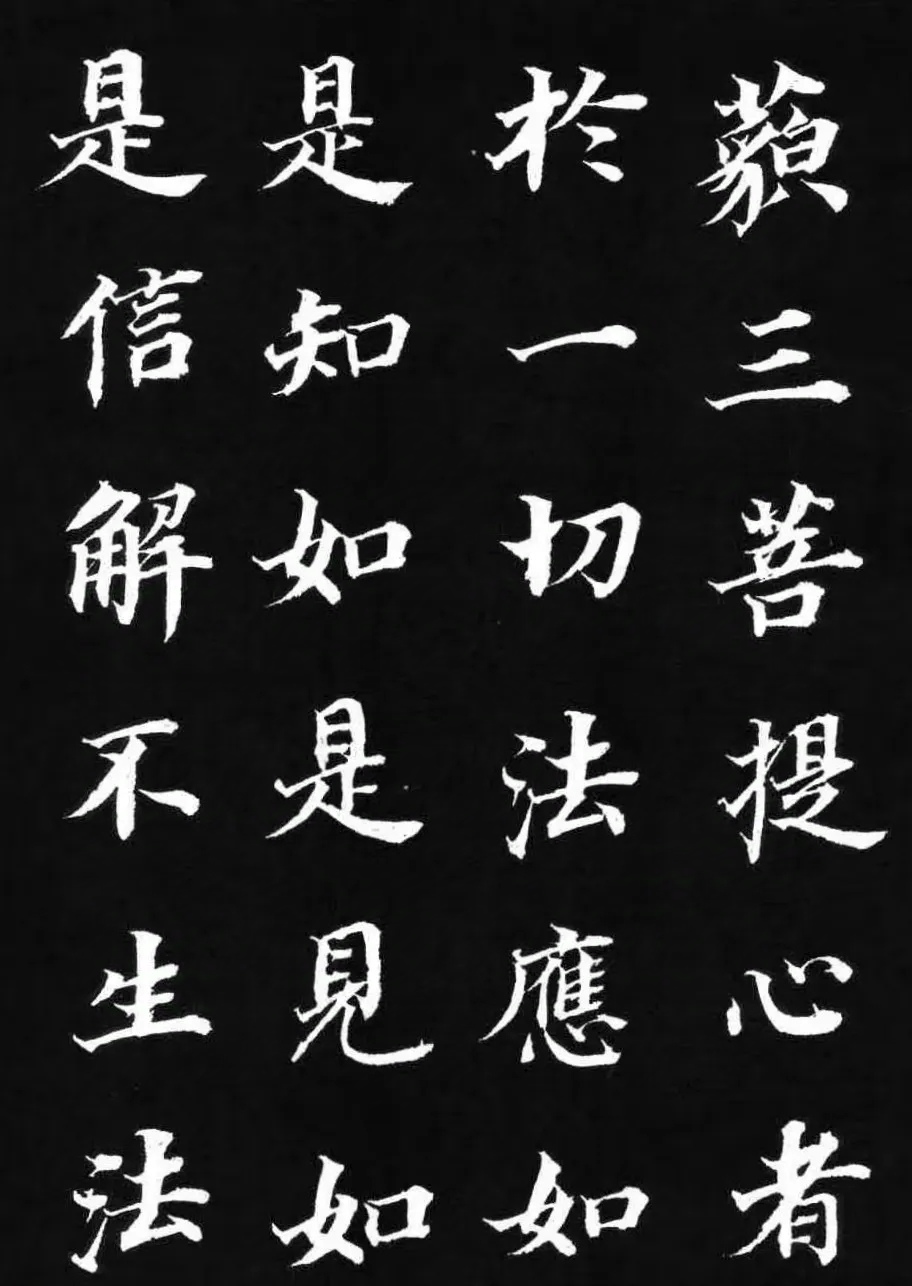 藐三菩提心者
於一切法應如
是知如是見如
是信解不生法